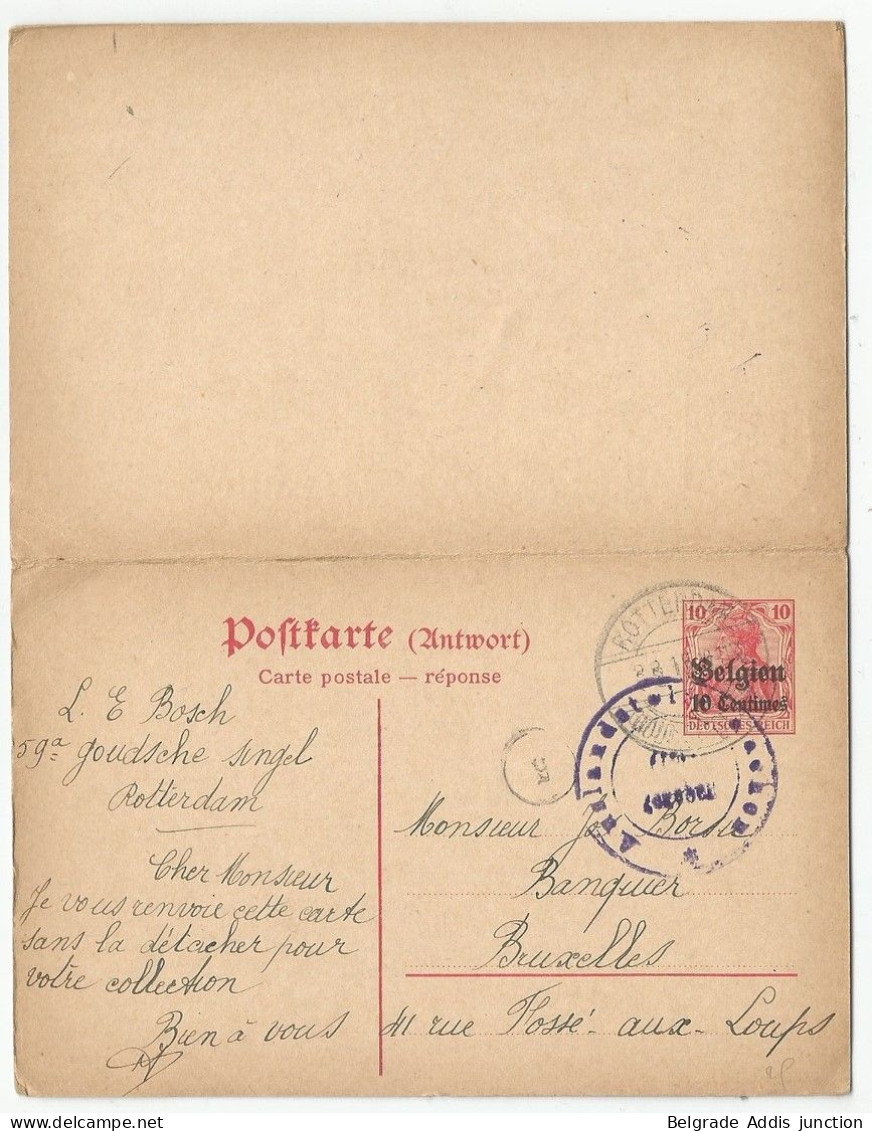 Postkarte (Antwort)
Carte postale — réponse
ROTTERDAM
10 10
Belgien
10 Centimes
DEUTSCHES REICH
L. E Bosch
59a goudsche singel
Rotterdam
Cher Monsieur
Je vous renvoie cette carte
sans la détacher pour
votre collection
Bien à vous
Monsieur Jos Borsu
Banquier
Bruxelles
41 rue Fossé-aux-Loups
Aachen
Belgrade Addis junction